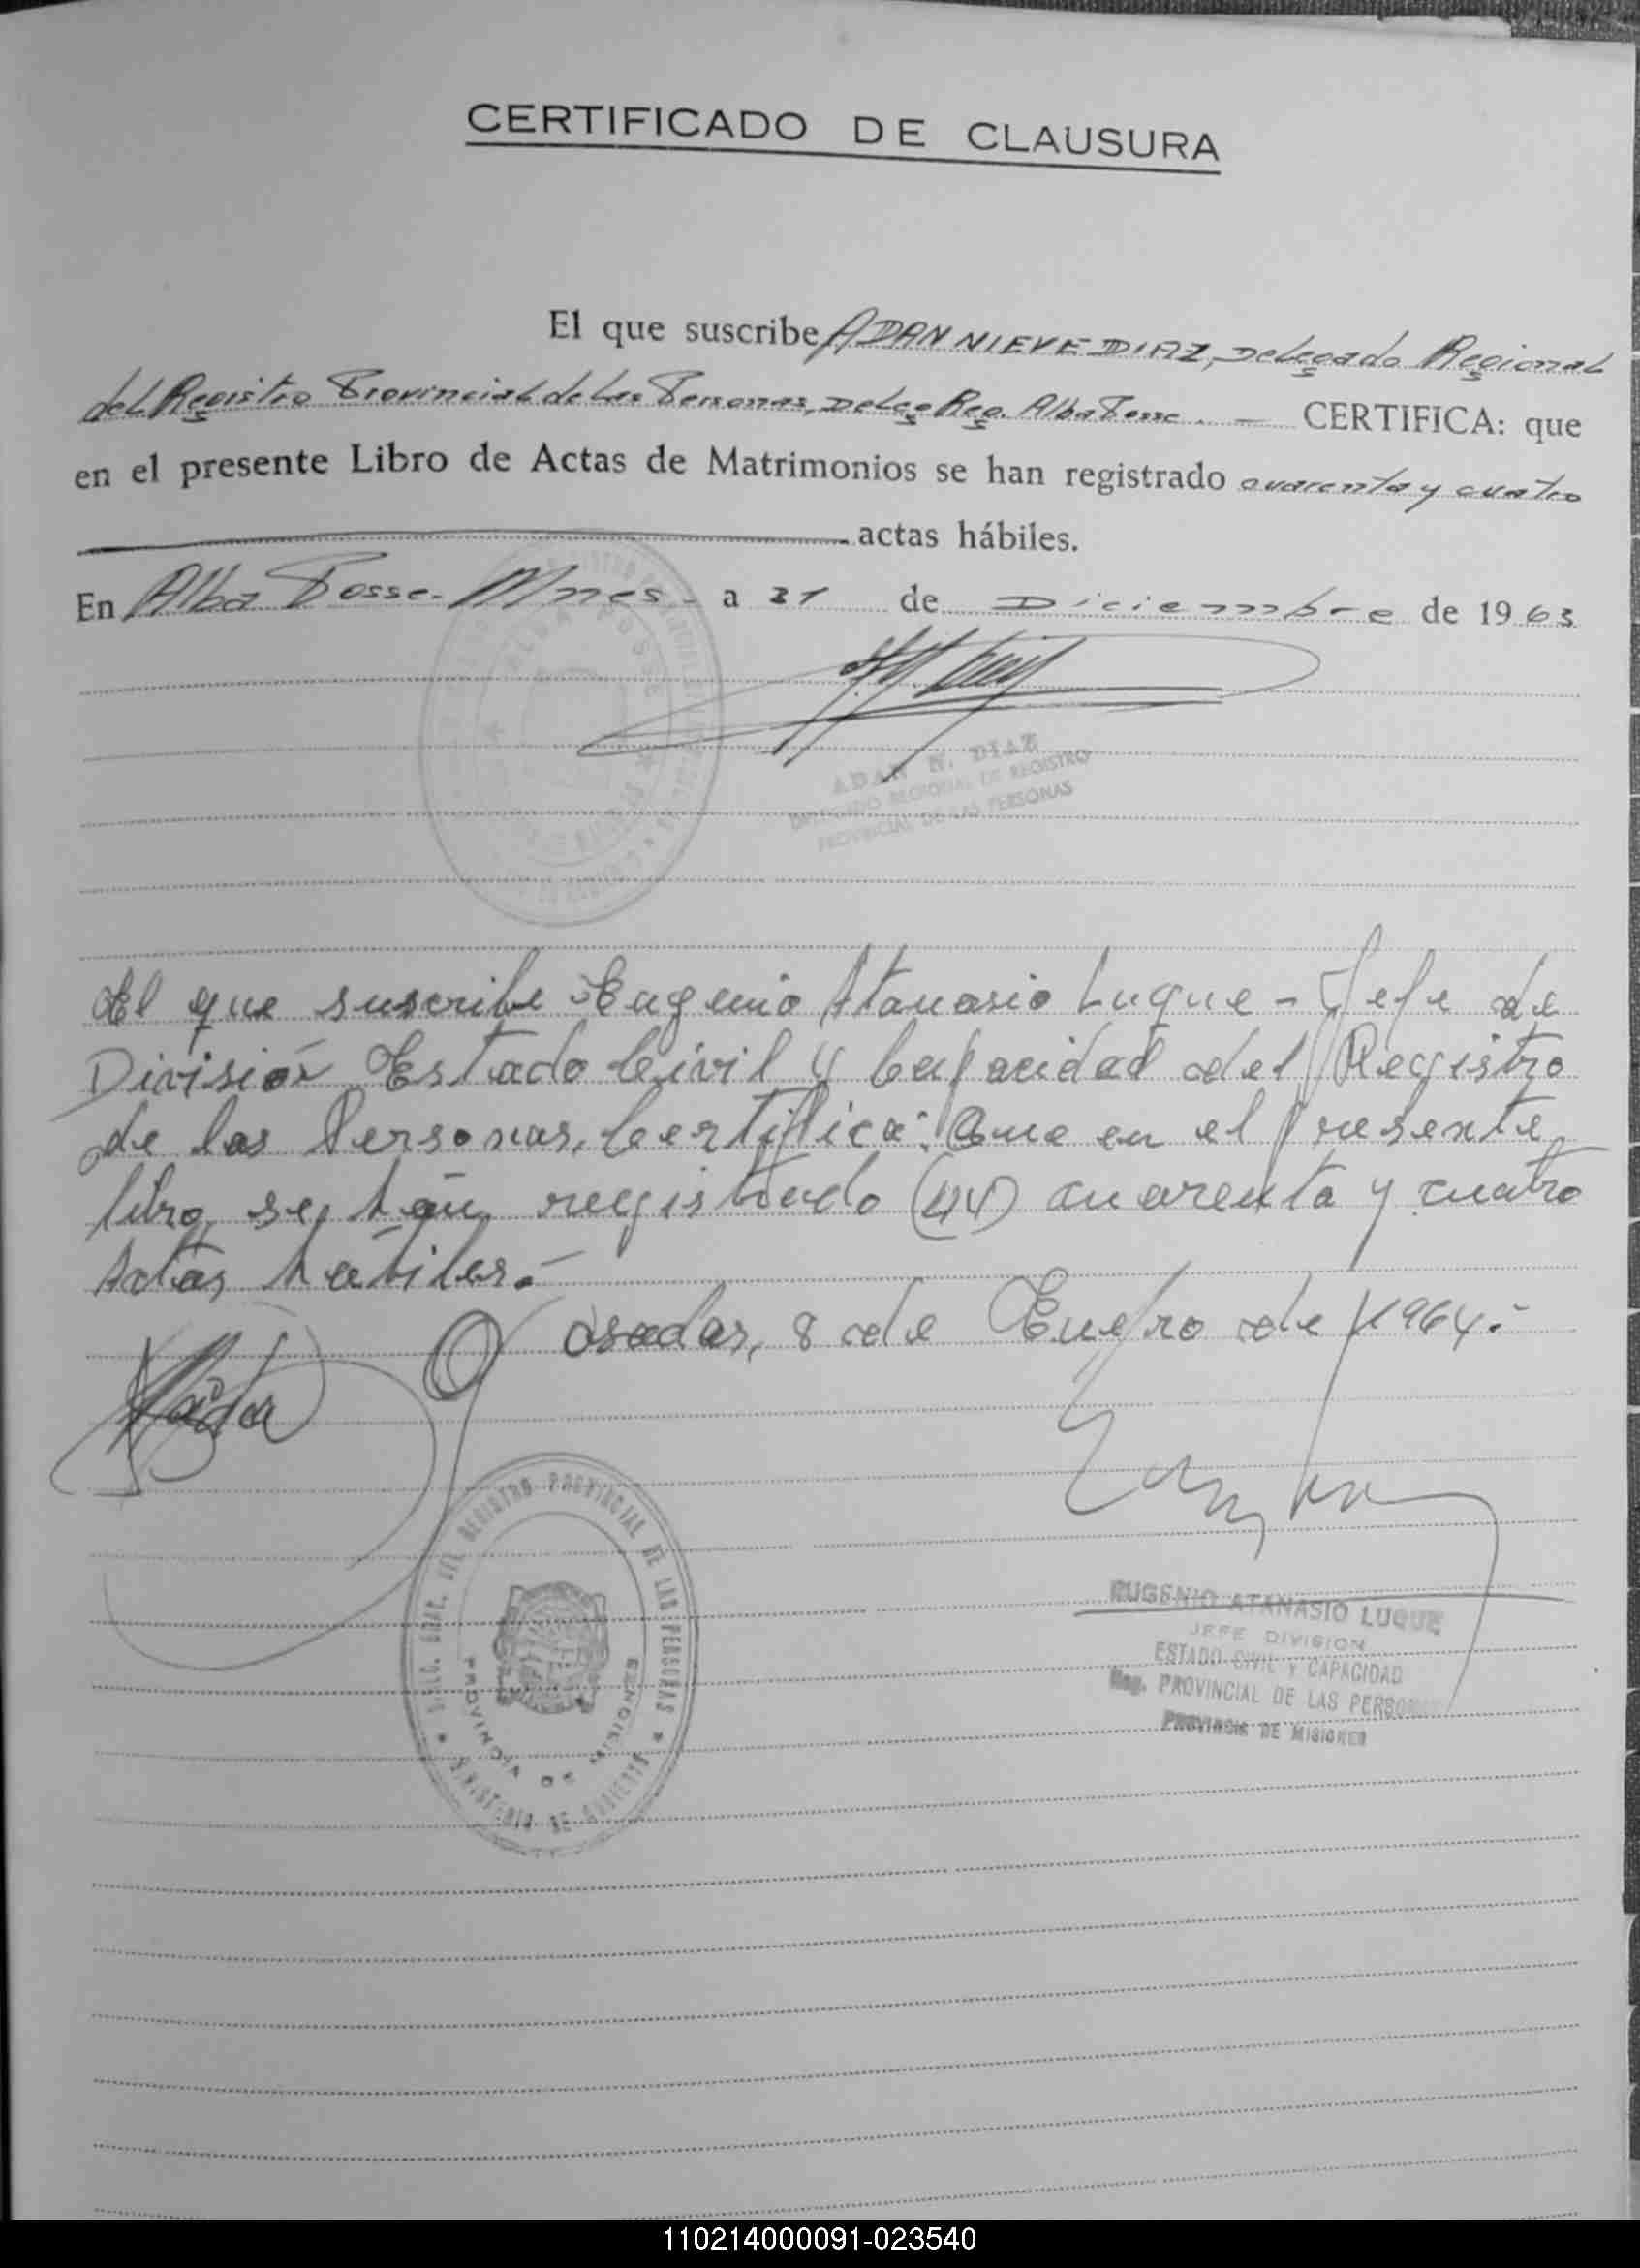 CERTIFICADO DE CLAUSURA
El que suscribe ADAN NIEVE DIAZ, Delegado Regional
del Registro Provincial de las Personas, Deleg. Reg. Alba Posse. — CERTIFICA: que
en el presente Libro de Actas de Matrimonios se han registrado cuarenta y cuatro
actas hábiles.
En Alba Posse - Mnes - a 31 de Diciembre de 1963
ALBA POSSE
ADAN N. DIAZ
DELEGADO REGIONAL DE REGISTRO
PROVINCIAL DE LAS PERSONAS
El que suscribe Eugenio Atanasio Luque - Jefe de
División Estado Civil y Capacidad del Registro
de las Personas, Certifica: Que en el presente
libro, se han registrado (44) cuarenta y cuatro
Actas hábiles.-
Posadas, 8 de Enero de 1964.-
DEL REGISTRO PROVINCIAL DE LAS PERSONAS
PROVINCIA DE MISIONES
MINISTERIO DE GOBIERNO
EUGENIO ATANASIO LUQUE
JEFE DIVISION
ESTADO CIVIL Y CAPACIDAD
Reg. PROVINCIAL DE LAS PERSONAS
PROVINCIA DE MISIONES
110214000091-023540